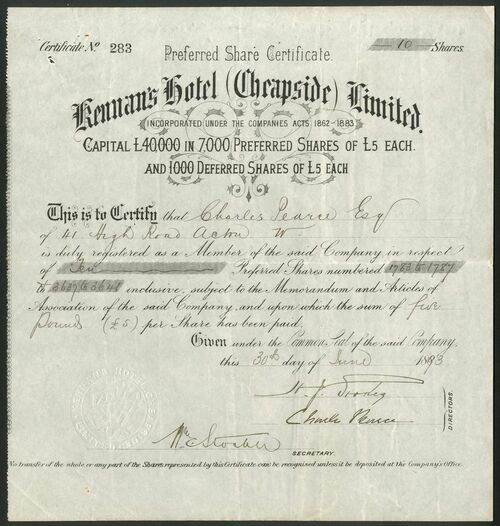 Certificate No 283
Preferred Share Certificate.
10 Shares.
Kennan's Hotel (Cheapside) Limited.
INCORPORATED UNDER THE COMPANIES ACTS 1862-1883
CAPITAL £40,000 IN 7,000 PREFERRED SHARES OF £5 EACH.
AND 1000 DEFERRED SHARES OF £5 EACH
This is to Certify that Charles Pearce Esq
of 41 High Road Acton W
is duly registered as a Member of the said Company in respect
of Ten Preferred Shares numbered 1783 to 1787
to 3637 to 3641 inclusive, subject to the Memorandum and Articles of
Association of the said Company, and upon which the sum of five
pounds (£5) per Share has been paid.
Given under the Common Seal of the said Company,
this 30th day of June 1893
Charles Pearce
DIRECTORS.
SECRETARY.
No transfer of the whole or any part of the Shares represented by this Certificate can be recognised unless it be deposited at the Company's Office.